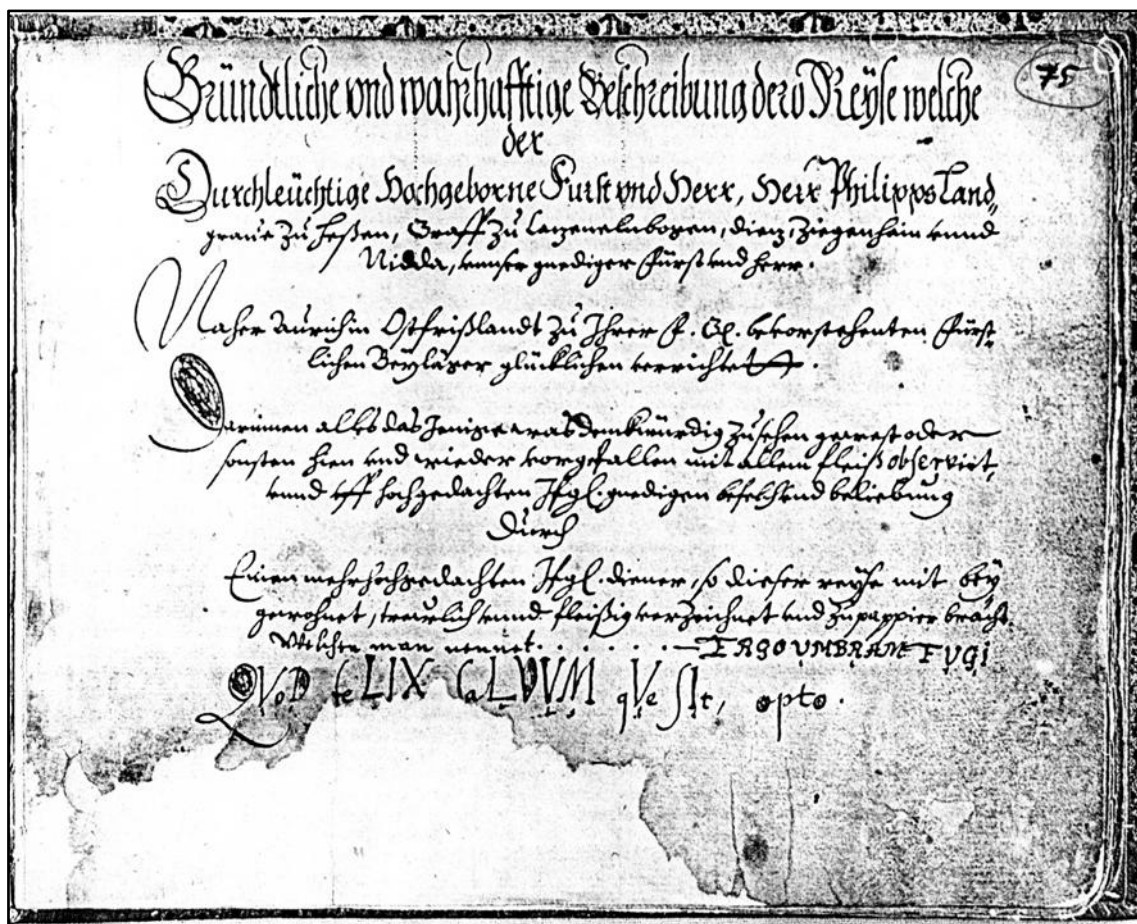 75
Gründtliche vnd wahrhafftige Beschreibung dero Reyse welche
der
Durchleüchtige Hochgeborne Furst vnd Herr, Herr Philipps Land„
graue zu Heßen, Graff zu Catzenelnbogen, Dietz, Ziegenhein vnnd
Nidda, vnnser gnediger Fürst vnd Herr.
Naher Aurich in Ostfrißlandt zu Ihrer F. G. bevorstehenten Fürst„
lichen Beyläger glücklichen verrichtet.
Darinnen alles das Jenige was denckwürdig zusehen gewest oder
sonsten hien vnd wieder vorgefallen mit allem fleiß observirt,
vnnd vff hochgedachten Ifgl. gnedigen befelch vnd beliebung
Durch
Einen mehrhochgedachten Ifgl. diener, so dieser reyse mit bey
gewohnet, trewlich vnnd fleißig verzeichnet vnd zu pappier bracht.
Welchen man nennet . . . . . . — ERGO VMBRAM FVGI
QVoD feLIX CaLVVM qVe SIt, opto.